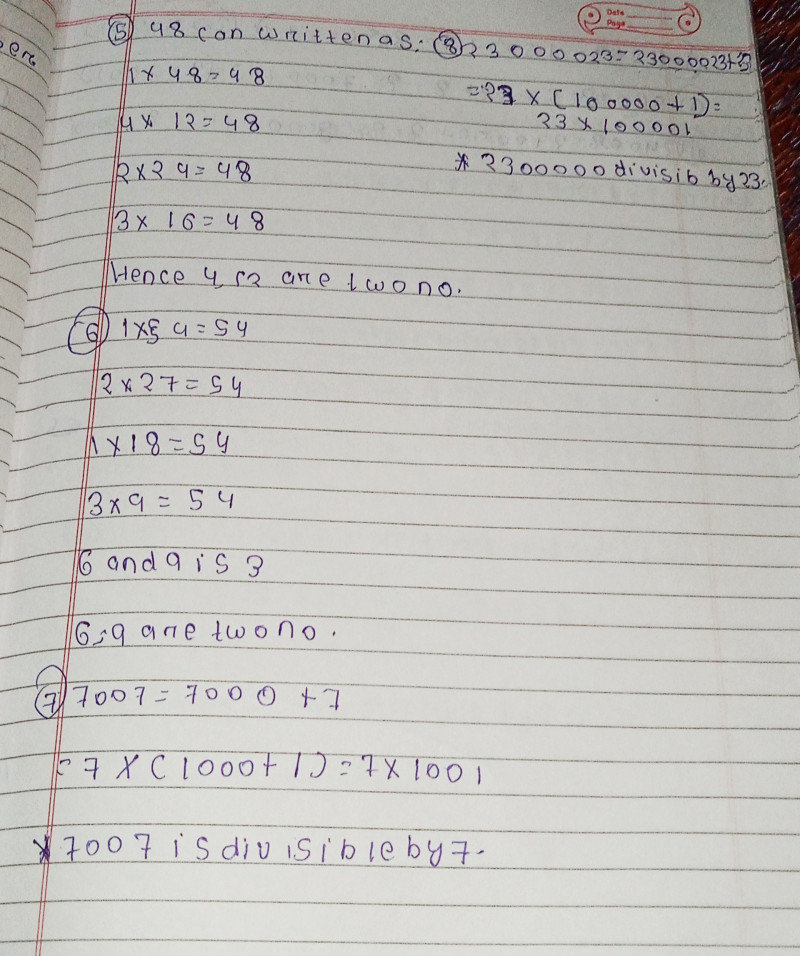 Date
Page
⑤ 48 can writtenas:
1 x 48 = 48
4 x 12 = 48
2 x 24 = 48
3 x 16 = 48
Hence 4, 12 are two no.
⑥ 1 x 54 = 54
2 x 27 = 54
1 x 18 = 54
3 x 9 = 54
6 and 9 is 3
6, 9 are two no.
⑦ 7007 = 7000 + 7
= 7 x (1000 + 1) = 7 x 1001
* 7007 is divisible by 7.
⑧ 23000023 =
= 23 x (100000 + 1) =
23 x 100001
* 2300000 divisib by 23.